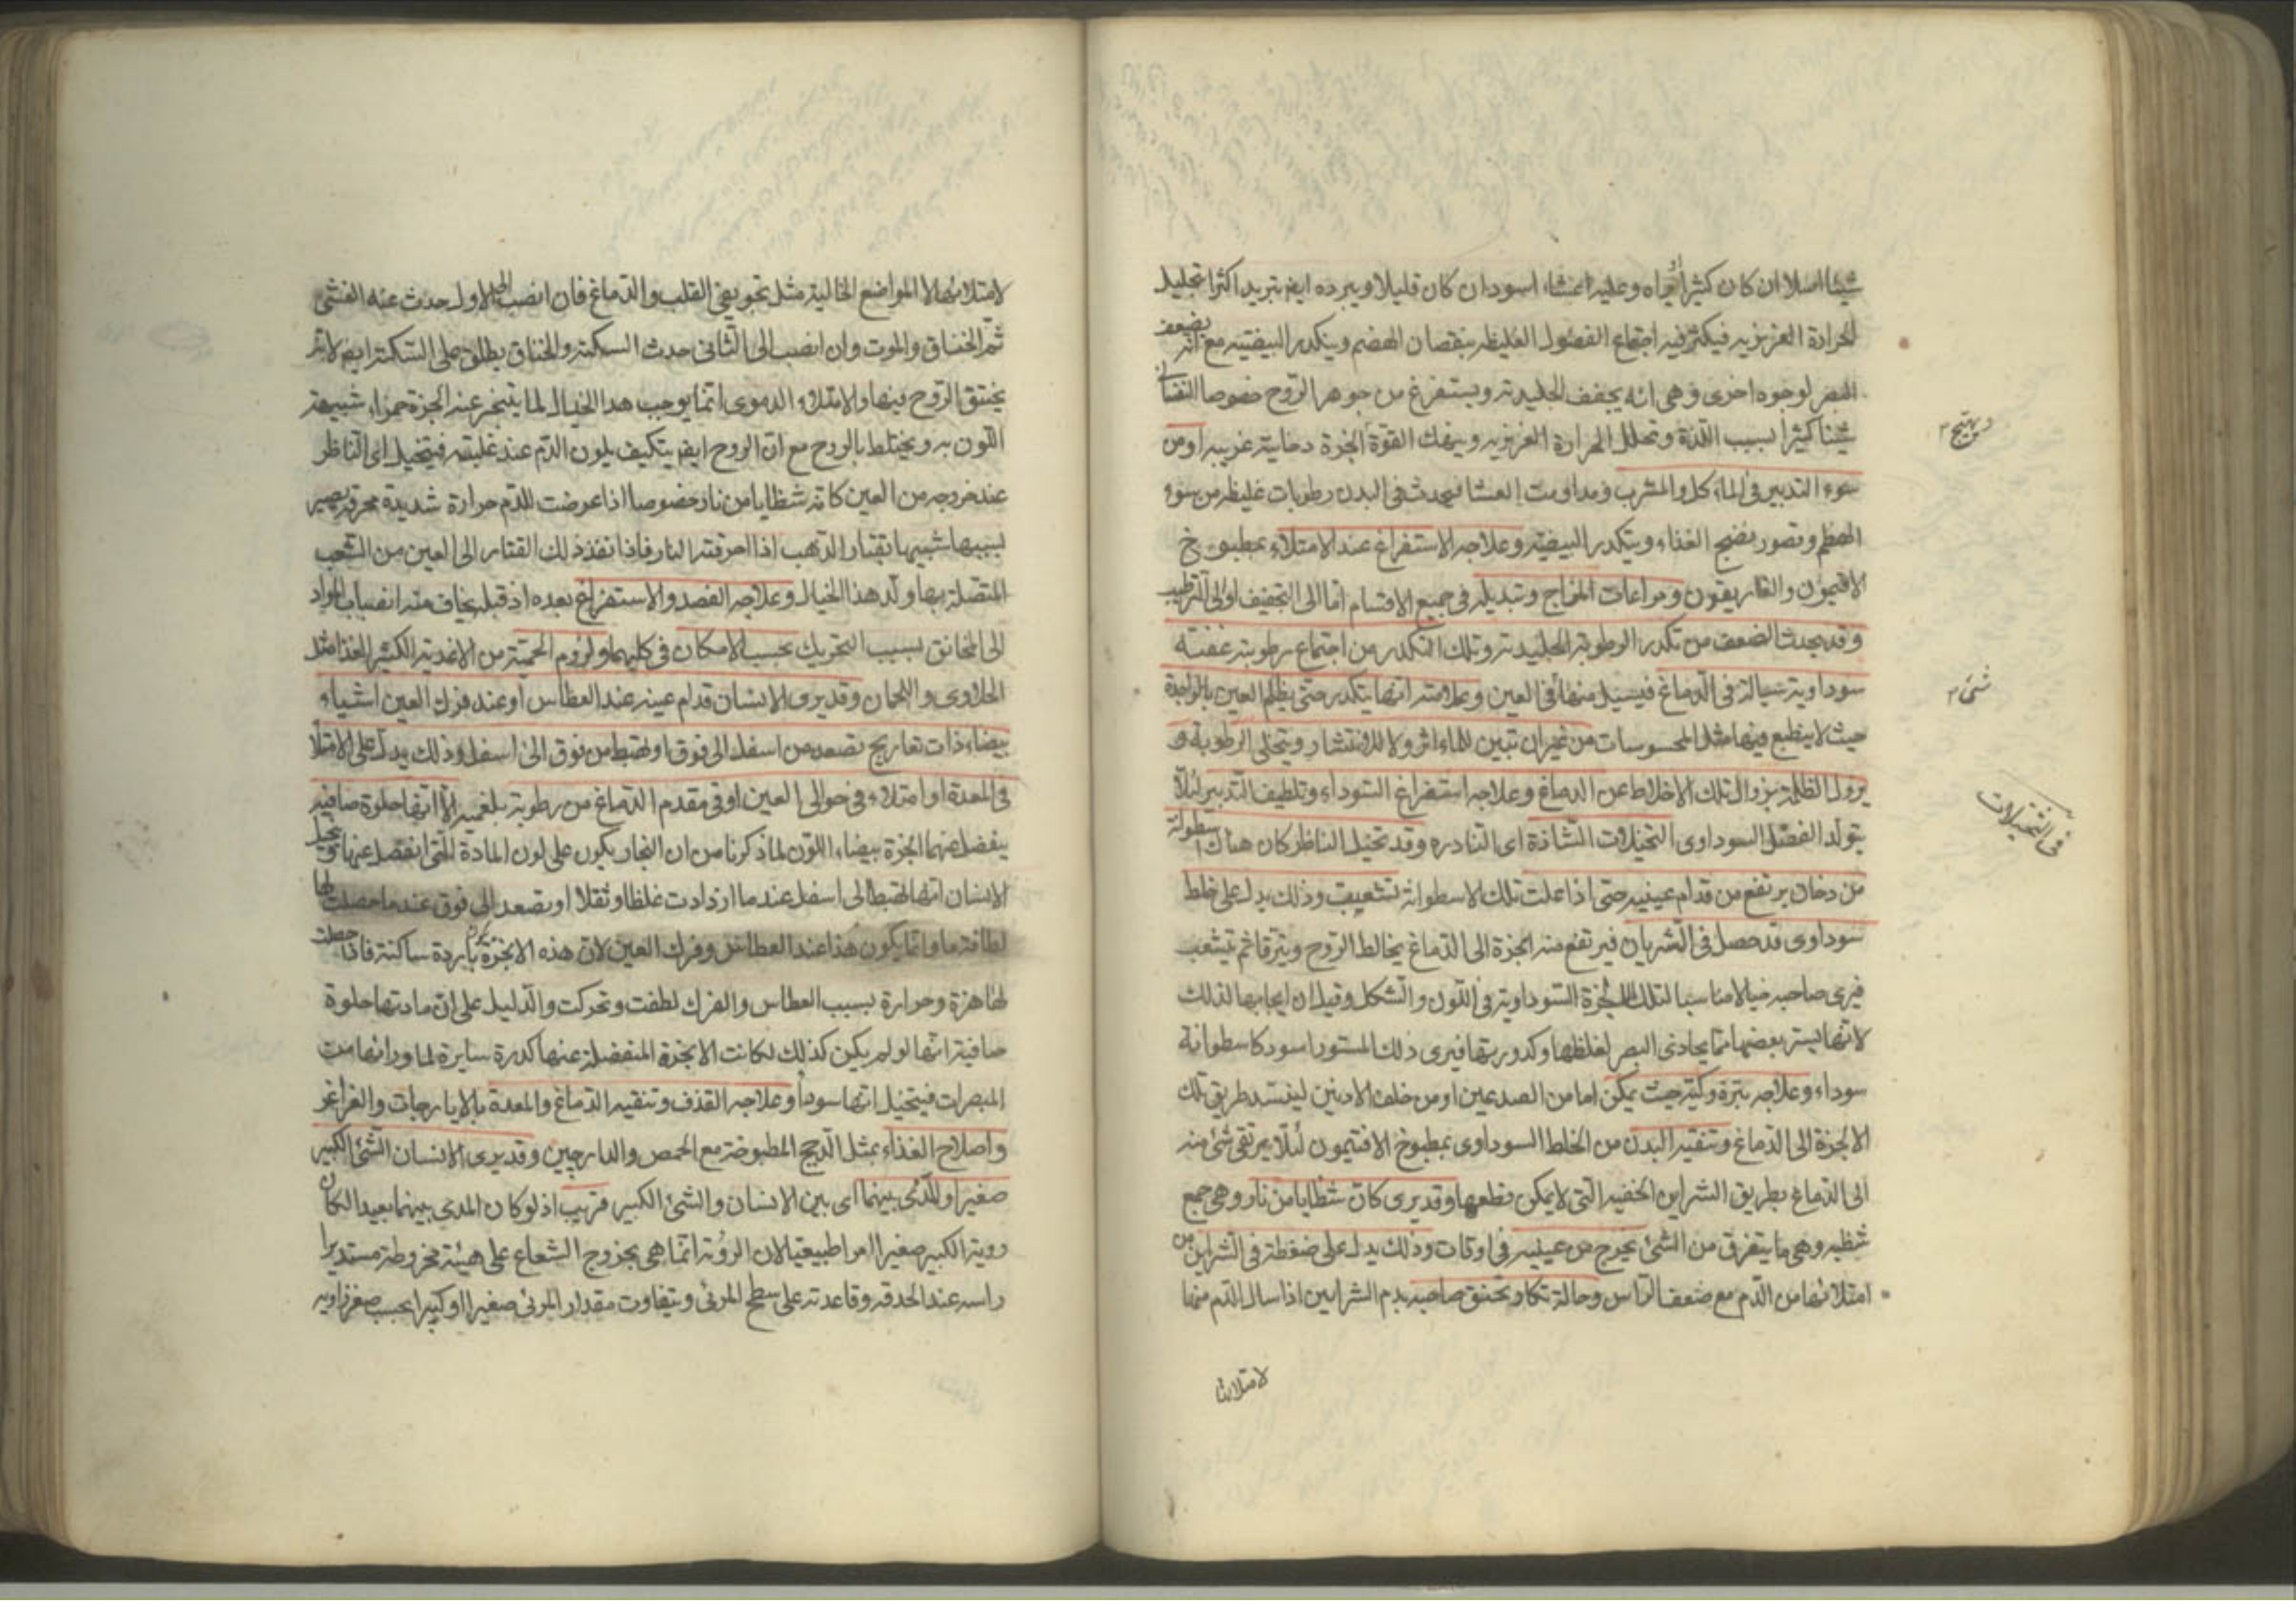 شيئا اصلا ان كان كثيرا وعليه اغشاء اسود ان كان قليلا ويبرده ايضا تبريد اكثرا تحليل
الحرارة الغريزيه فيكثر فيه اجتماع الفضول الغليظه بنقصان الهضم ويتكدر البيضيه مع انه يضعف
البصر لوجوه اخرى وهى انه يجفف الجليديه ويستفرغ من جوهر الروح خصوصا النفسانى
شيئا كثيرا بسبب اللذة وتحلل الحرارة الغريزيه وينهك القوة ابخرة دخانية غريبه اومن
ويهيج
سوء التدبير فى الماكل والمشرب ومداومت العشا فيحدث فى البدن رطوبات غليظه من سوء
الهضم وقصور نضج الغذاء ويتكدر البيضيه وعلاجه الاستفراغ عند الامتلاء بمطبوخ
الافتيمون والغاريقون ومراعات المزاج وتبديله فى جميع الاقسام اما الى التجفيف او الى الترطيب
وقد يحدث الضعف من تكدر الرطوبة الجليديه وتلك التكدر من اجتماع رطوبة عفنة
سوداوية سيالة فى الدماغ فيسيل منها فى العين وعلامته انها يتكدر حتى يظلم العين بالواحدة
شئ
حيث لا ينطبع فيها مثل المحسوسات من غير ان تبين للماء اثر ولا للانتشار ويتحلى الرطوبة و
يزول الظلمة بزوال تلك الاخلاط عن الدماغ وعلاجه استفراغ السوداء وتلطيف التدبير لئلا
يتولد الفضل السوداوى التخيلات الشاذة اى النادره وقد تخيل الناظر كان هناك اسطوانة
فى التخيلات
من دخان يرتفع من قدام عينيه حتى اذا علت تلك الاسطوانة تشعبت وذلك يدل على خلط
سوداوى قد حصل فى الشريان فيرتفع منه ابخرة الى الدماغ يخالط الروح ويترقا ثم يتشعب
فيرى صاحبه خيالا مناسبا لتلك الابخرة السوداوية فى اللون والشكل وقيل ان ايجابها لذلك
لانها يستر بعضها مما يحاذى البصر لغلظها وكدورتها فيرى ذلك المستور اسود كاسطوانة
سوداء وعلاجه بتره وكيه حيث يمكن اما من الصدغين او من خلف الاذنين لينسد طريق تلك
الابخرة الى الدماغ وتنقيه البدن من الخلط السوداوى بمطبوخ الافتيمون لئلا يرتقى شئ منه
الى الدماغ بطريق الشراين الخفيه التى لا يمكن قطعها وقد يرى كان شظايا من نار وهى جمع
شظيه وهى ما يتفرق من الشئ يخرج من عينيه فى اوقات وذلك يدل على ضغطة فى الشراين من
امتلائها من الدم مع ضعف الراس وحالة تكاد تخنق صاحبه بدم الشراين اذا سال الدم منها
لامتلائها
لامتلائها لا المواضع الخالية مثل تجويفى القلب والدماغ فان انصب الى الاول حدث عنه الغشى
ثم الخناق والموت وان انصب الى الثانى حدث السكتة والخناق يطلق على السكتة ايضا لانه
يختنق الروح فيها والامتلاء الدموى انما يوجب هذا الخيال لما يتبخر عنه ابخرة حمراء شبيهة
اللون به ويختلط بالروح مع ان الروح ايضا يتكيف بلون الدم عند غلبته فيتخيل اى الناظر
عند خروجه من العين كانه شظايا من نار خصوصا اذا عرضت للدم حرارة شديدة محرقة يصير
بسببها شبيها بقتار الذهب اذا احرقته النار فاذا نفذ ذلك القتار الى العين من الشعب
المتصلة بها ولد هذا الخيال وعلاجه الفصد والاستفراغ بعده اذ قبله يخاف منه انصباب المواد
الى المخانق بسبب التحريك بحسب الامكان فى كليهما ولزوم الحمية من الاغذية الكثير الغذا مثل
الحلاوى واللحمان وقد يرى الانسان قدام عينه عند العطاس او عند فرك العين اشياء
بيضاء ذات تعاريج تصعد من اسفل الى فوق او تهبط من فوق الى اسفل وذلك يدل على الامتلا
فى المعدة او امتلاء فى حوالى العين او فى مقدم الدماغ من رطوبة بلغميه الا انها حلوة صافيه
ينفصل عنها ابخرة بيضاء اللون لما ذكرنا من ان البخار يكون على لون المادة التى انفصل عنها و تخيل
الانسان انها تهبط الى اسفل عند ما ازدادت غلظا وثقلا او يصعد الى فوق عند ما حصلت لها
لطافة ما وانما يكون هذا عند العطاس وفرك العين لان هذه الابخرة باردة ساكنة فاذا حصلت
لها هزة وحرارة بسبب العطاس والفرك لطفت وتحركت والدليل على ان مادتها حلوة
صافية انها لو لم يكن كذلك لكانت الابخرة المنفصلة عنها كدرة ساترة لما ورائها من
المبصرات فيتخيل انها سودا وعلاجه القذف وتنقيه الدماغ والمعدة بالايارجات والغراغر
واصلاح الغذاء بمثل الديج المطبوخة مع الحمص والدارچين وقد يرى الانسان الشئ الكبير
صغيرا والمدى بينهما اى بين الانسان والشئ الكبير قريب اذ لو كان المدى بينهما بعيدا لكان
روية الكبير صغيرا امرا طبيعيا لان الروية انما هى بخروج الشعاع على هيئة مخروطة مستديرا
راسه عند الحدقه وقاعدته على سطح المرئى ويتفاوت مقدار المرئى صغيرا او كبيرا بحسب صغر زاويه